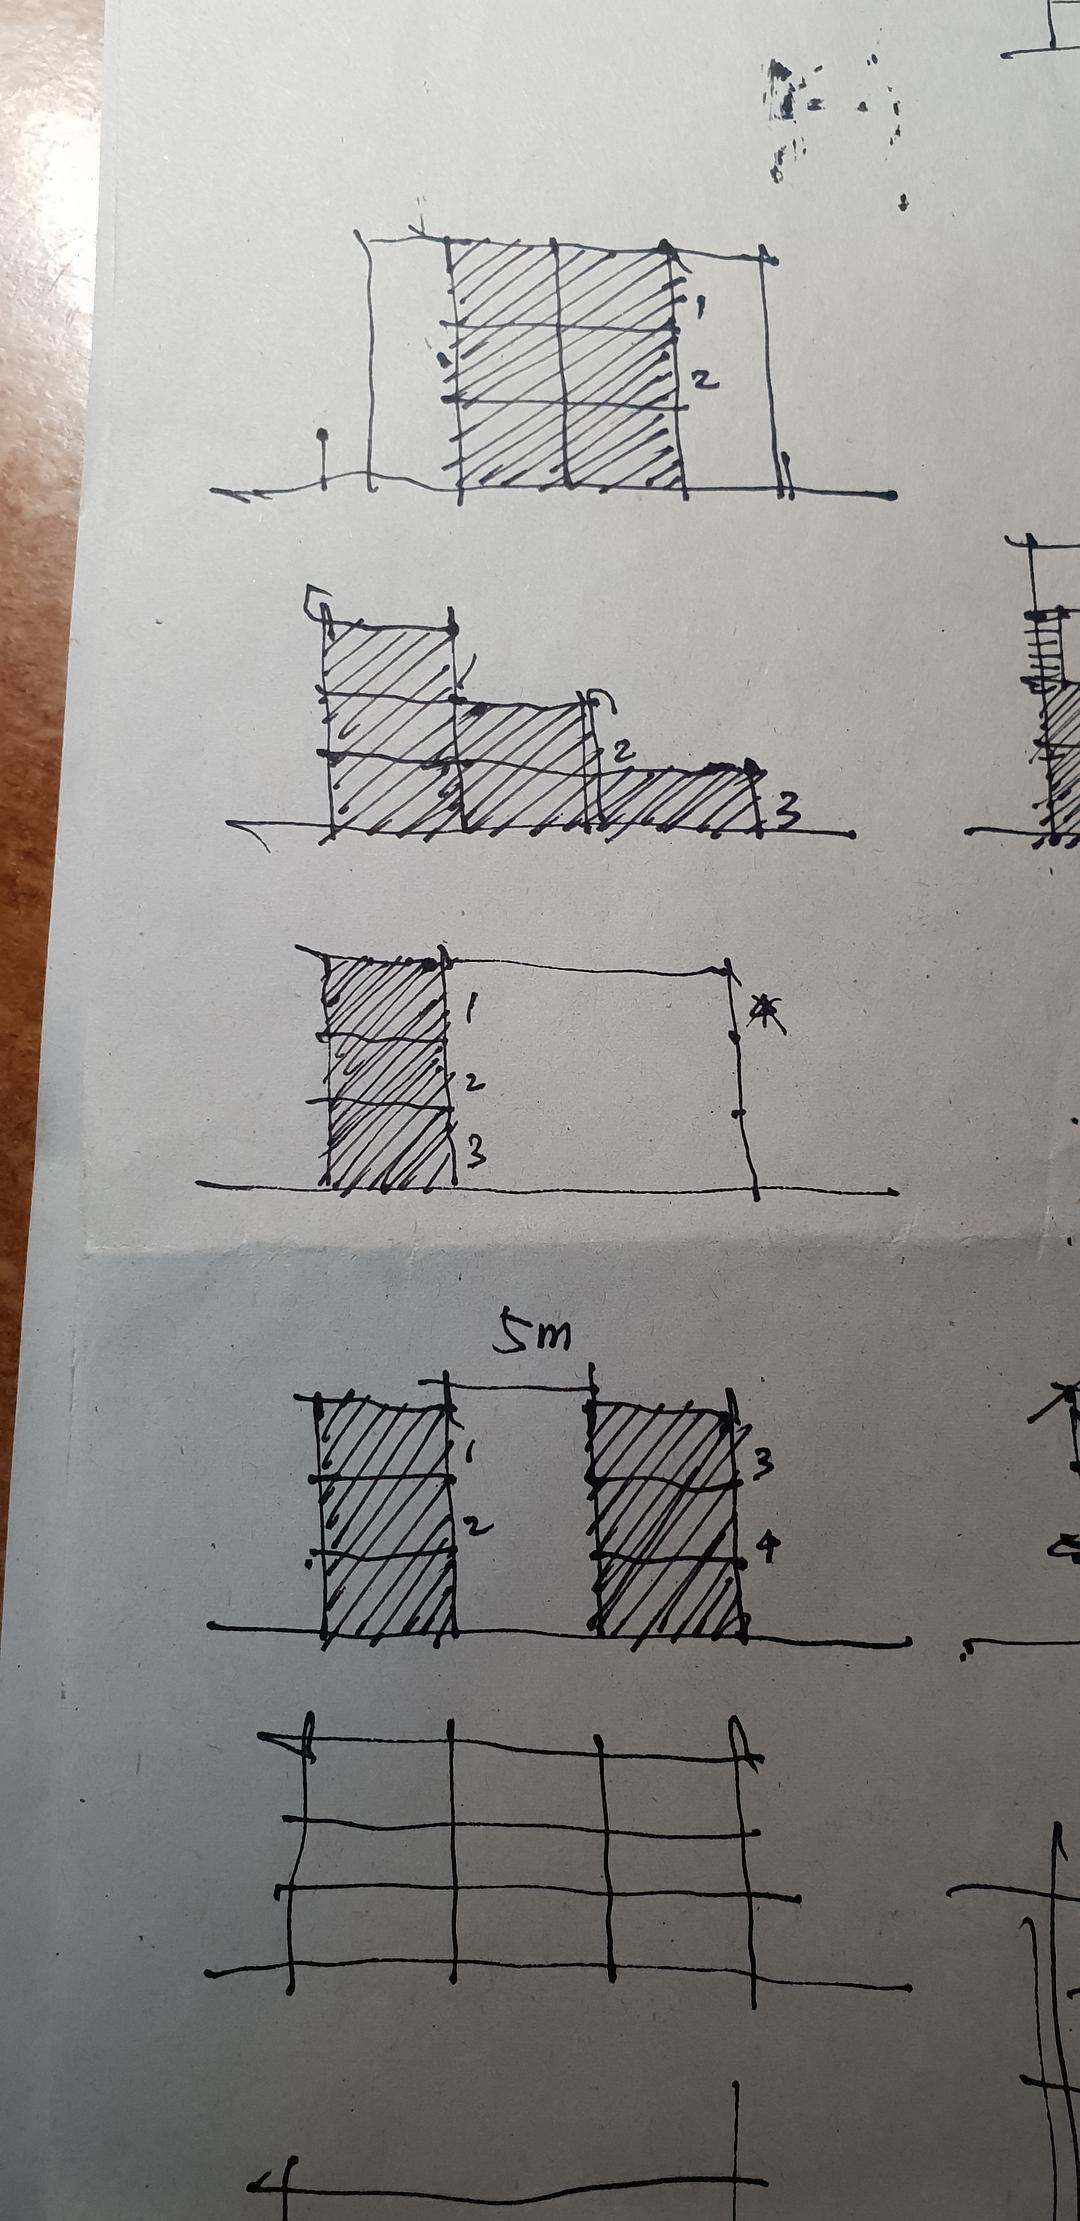 1
2
2
3
1
2
3
5m
1
3
2
4